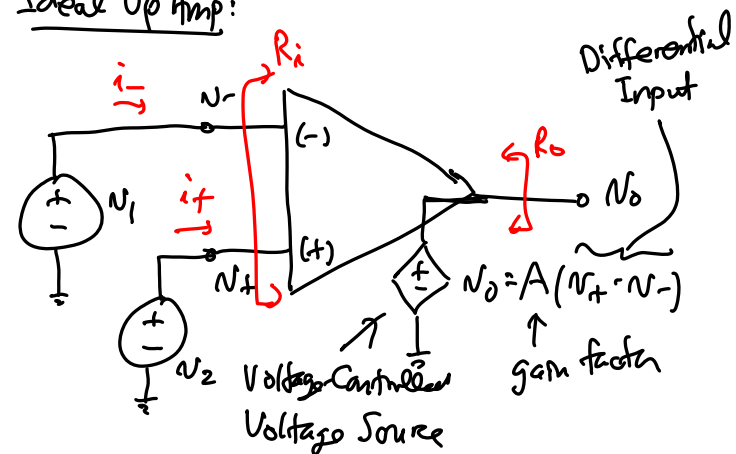 Ideal Op Amp:
Ri
Differential
Input
i-
v-
(-)
Ro
+
-
v1
i+
vo
(+)
v+
+
-
vo = A(v+ - v-)
+
-
v2
Voltage-Controlled
Voltage Source
gain factor